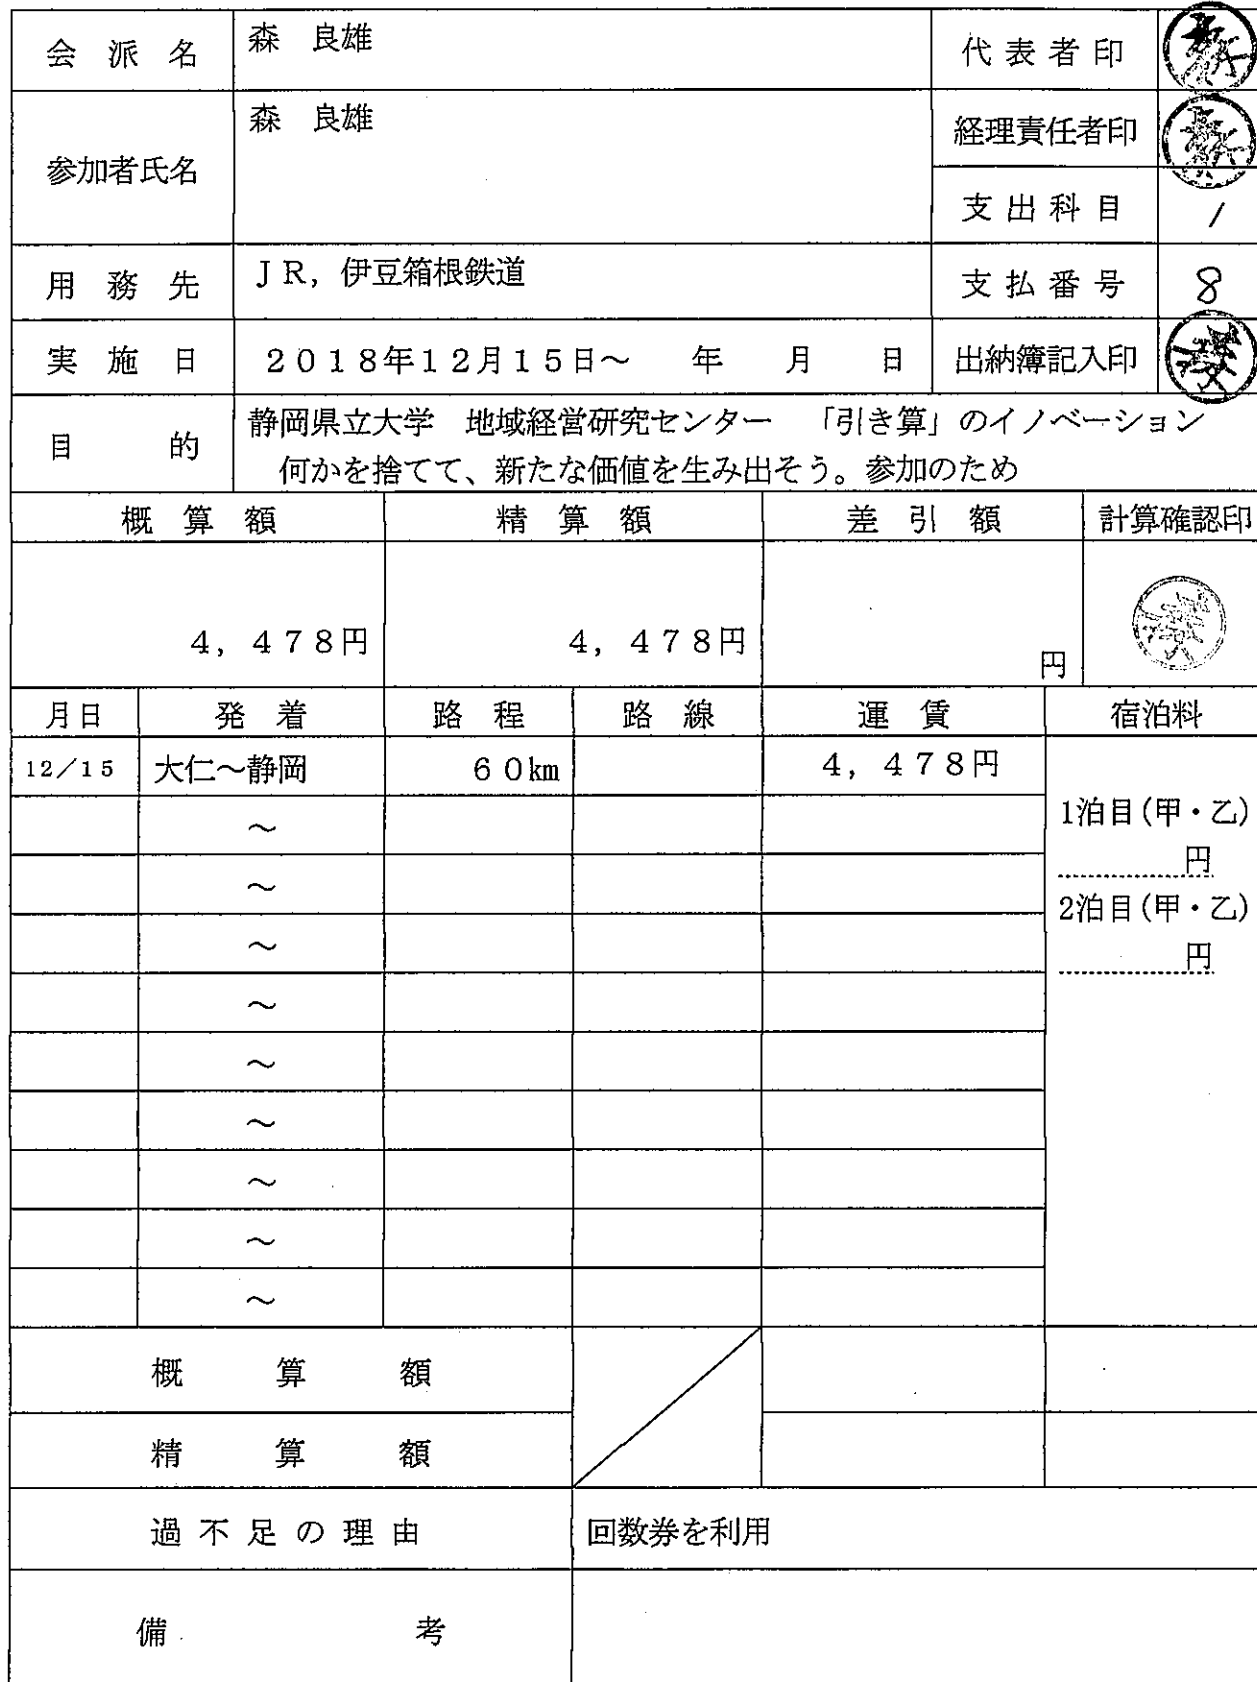 会派名 森 良雄 代表者印
参加者氏名 森 良雄 経理責任者印
支出科目 1
用務先 JR，伊豆箱根鉄道 支払番号 8
実施日 2018年12月15日～ 年 月 日 出納簿記入印
目的 静岡県立大学 地域経営研究センター 「引き算」のイノベーション
何かを捨てて、新たな価値を生み出そう。参加のため
概算額 精算額 差引額 計算確認印
4，478円 4，478円 円
月日 発着 路程 路線 運賃 宿泊料
12／15 大仁～静岡 60km 4，478円
～ 1泊目(甲・乙)
～ 円
～ 2泊目(甲・乙)
円
～
～
～
～
～
～
概算額
精算額
過不足の理由 回数券を利用
備考